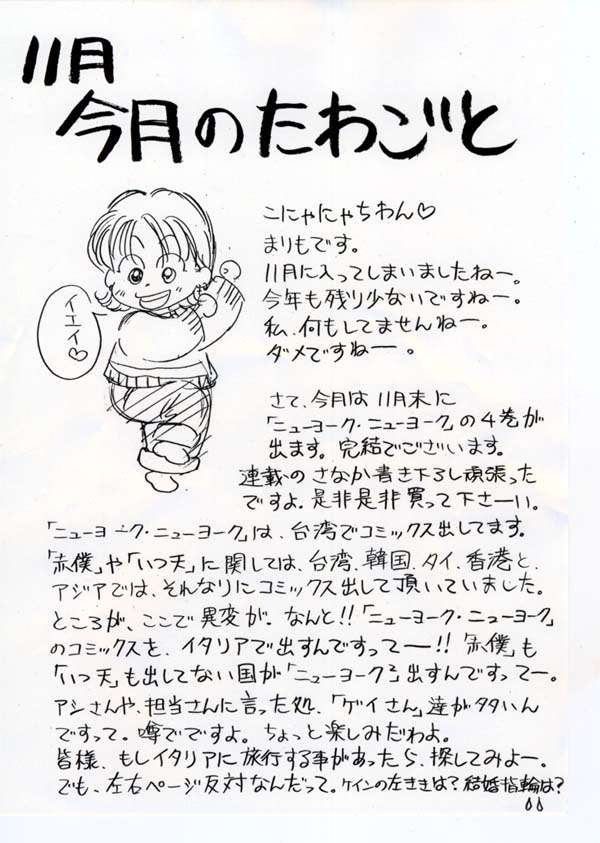 11月
今月のたわごと
こにゃにゃちわん♡
まりもです。
11月に入ってしまいましたねー。
今年も残り少ないですねー。
私、何もしてませんねー。
ダメですねー。
イエイ♡
さて、今月は11月末に
「ニューヨーク・ニューヨーク」の4巻が
出ます。完結でございます。
連載のさなか書き下ろし頑張った
ですよ。是非是非買って下さーい。
「ニューヨーク・ニューヨーク」は、台湾でコミックス出してます。
「赤僕」や「いつ天」に関しては、台湾、韓国、タイ、香港と、
アジアでは、それなりにコミックス出して頂いていました。
ところが、ここで異変が。なんと!!「ニューヨーク・ニューヨーク」
のコミックスを、イタリアで出すんですってー!!「赤僕」も
「いつ天」も出してない国が「ニューヨーク²」出すんですってー。
アシさんや、担当さんに言った処、「ゲイさん」達が多いん
ですって。噂でですよ。ちょっと楽しみだわよ。
皆様、もしイタリアに旅行する事があったら、探してみよー。
でも、左右ページ反対なんだって。ケインの左ききは?結婚指輪は?